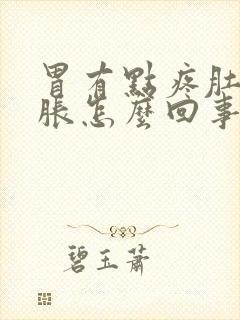 胃有點疼肚
脹怎麼回事
碧玉蕭